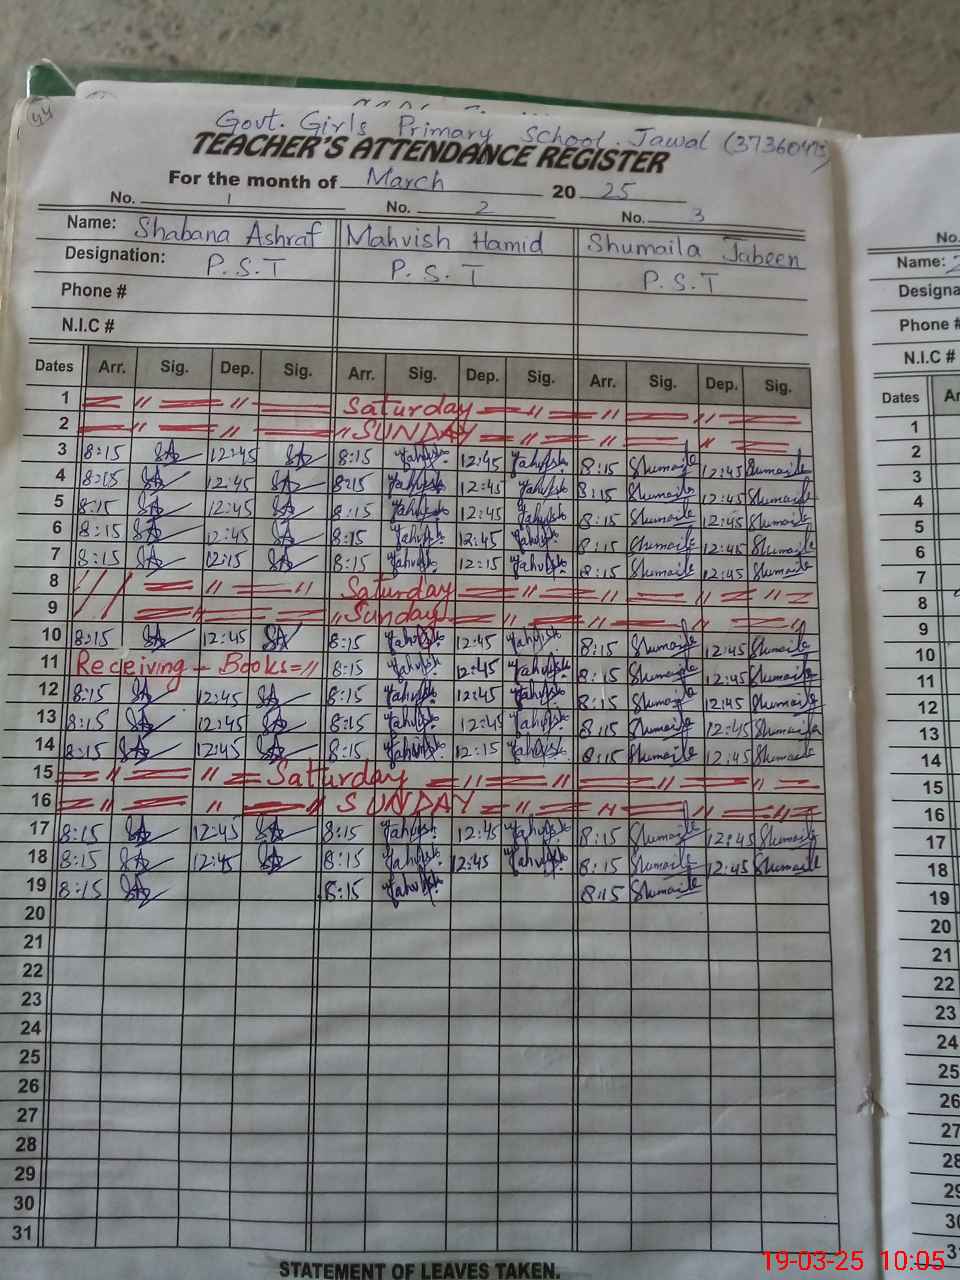 44
Govt. Girls Primary School. Jawal (37360473)
TEACHER'S ATTENDANCE REGISTER
For the month of March 2025
No. 1 No. 2 No. 3
Name: Shabana Ashraf Mahvish Hamid Shumaila Jabeen
Designation: P.S.T P.S.T P.S.T
Phone #
N.I.C #
Dates Arr. Sig. Dep. Sig. Arr. Sig. Dep. Sig. Arr. Sig. Dep. Sig.
1 Saturday
2 SUNDAY
3 8:15 SA 12:45 SA 8:15 12:45 8:15 Shumaila 12:45 Shumaila
4 8:15 SA 12:45 SA 8:15 12:45 8:15 Shumaila 12:45 Shumaila
5 8:15 SA 12:45 SA 8:15 12:45 8:15 Shumaila 12:45 Shumaila
6 8:15 SA 12:45 SA 8:15 12:45 8:15 Shumaila 12:45 Shumaila
7 8:15 SA 12:15 SA 8:15 12:15 8:15 Shumaila 12:45 Shumaila
8 Saturday
9 Sunday
10 8:15 SA 12:45 SA 8:15 12:45 8:15 Shumaila 12:45 Shumaila
11 Receiving - Books 8:15 12:45 8:15 Shumaila 12:45 Shumaila
12 8:15 SA 12:45 SA 8:15 12:45 8:15 Shumaila 12:45 Shumaila
13 8:15 SA 12:45 SA 8:15 12:45 8:15 Shumaila 12:45 Shumaila
14 8:15 SA 12:45 SA 8:15 12:15 8:15 Shumaila 12:45 Shumaila
15 Satturday
16 SUNDAY
17 8:15 SA 12:45 SA 8:15 12:45 8:15 Shumaila 12:45 Shumaila
18 8:15 SA 12:45 SA 8:15 12:45 8:15 Shumaila 12:45 Shumaila
19 8:15 SA 8:15 8:15 Shumaila
20
21
22
23
24
25
26
27
28
29
30
31
STATEMENT OF LEAVES TAKEN.
No.
Name:
Designa
Phone #
N.I.C #
Dates Ar
1
2
3
4
5
6
7
8
9
10
11
12
13
14
15
16
17
18
19
20
21
22
23
24
25
26
27
28
29
30
3
19-03-25 10:05